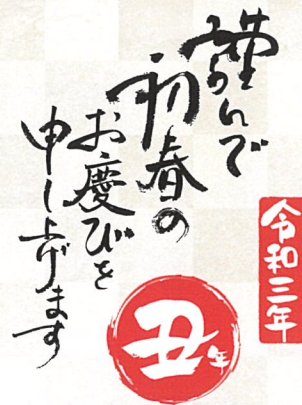 謹んで
初春の
お慶びを
申し上げます
令和三年
丑年